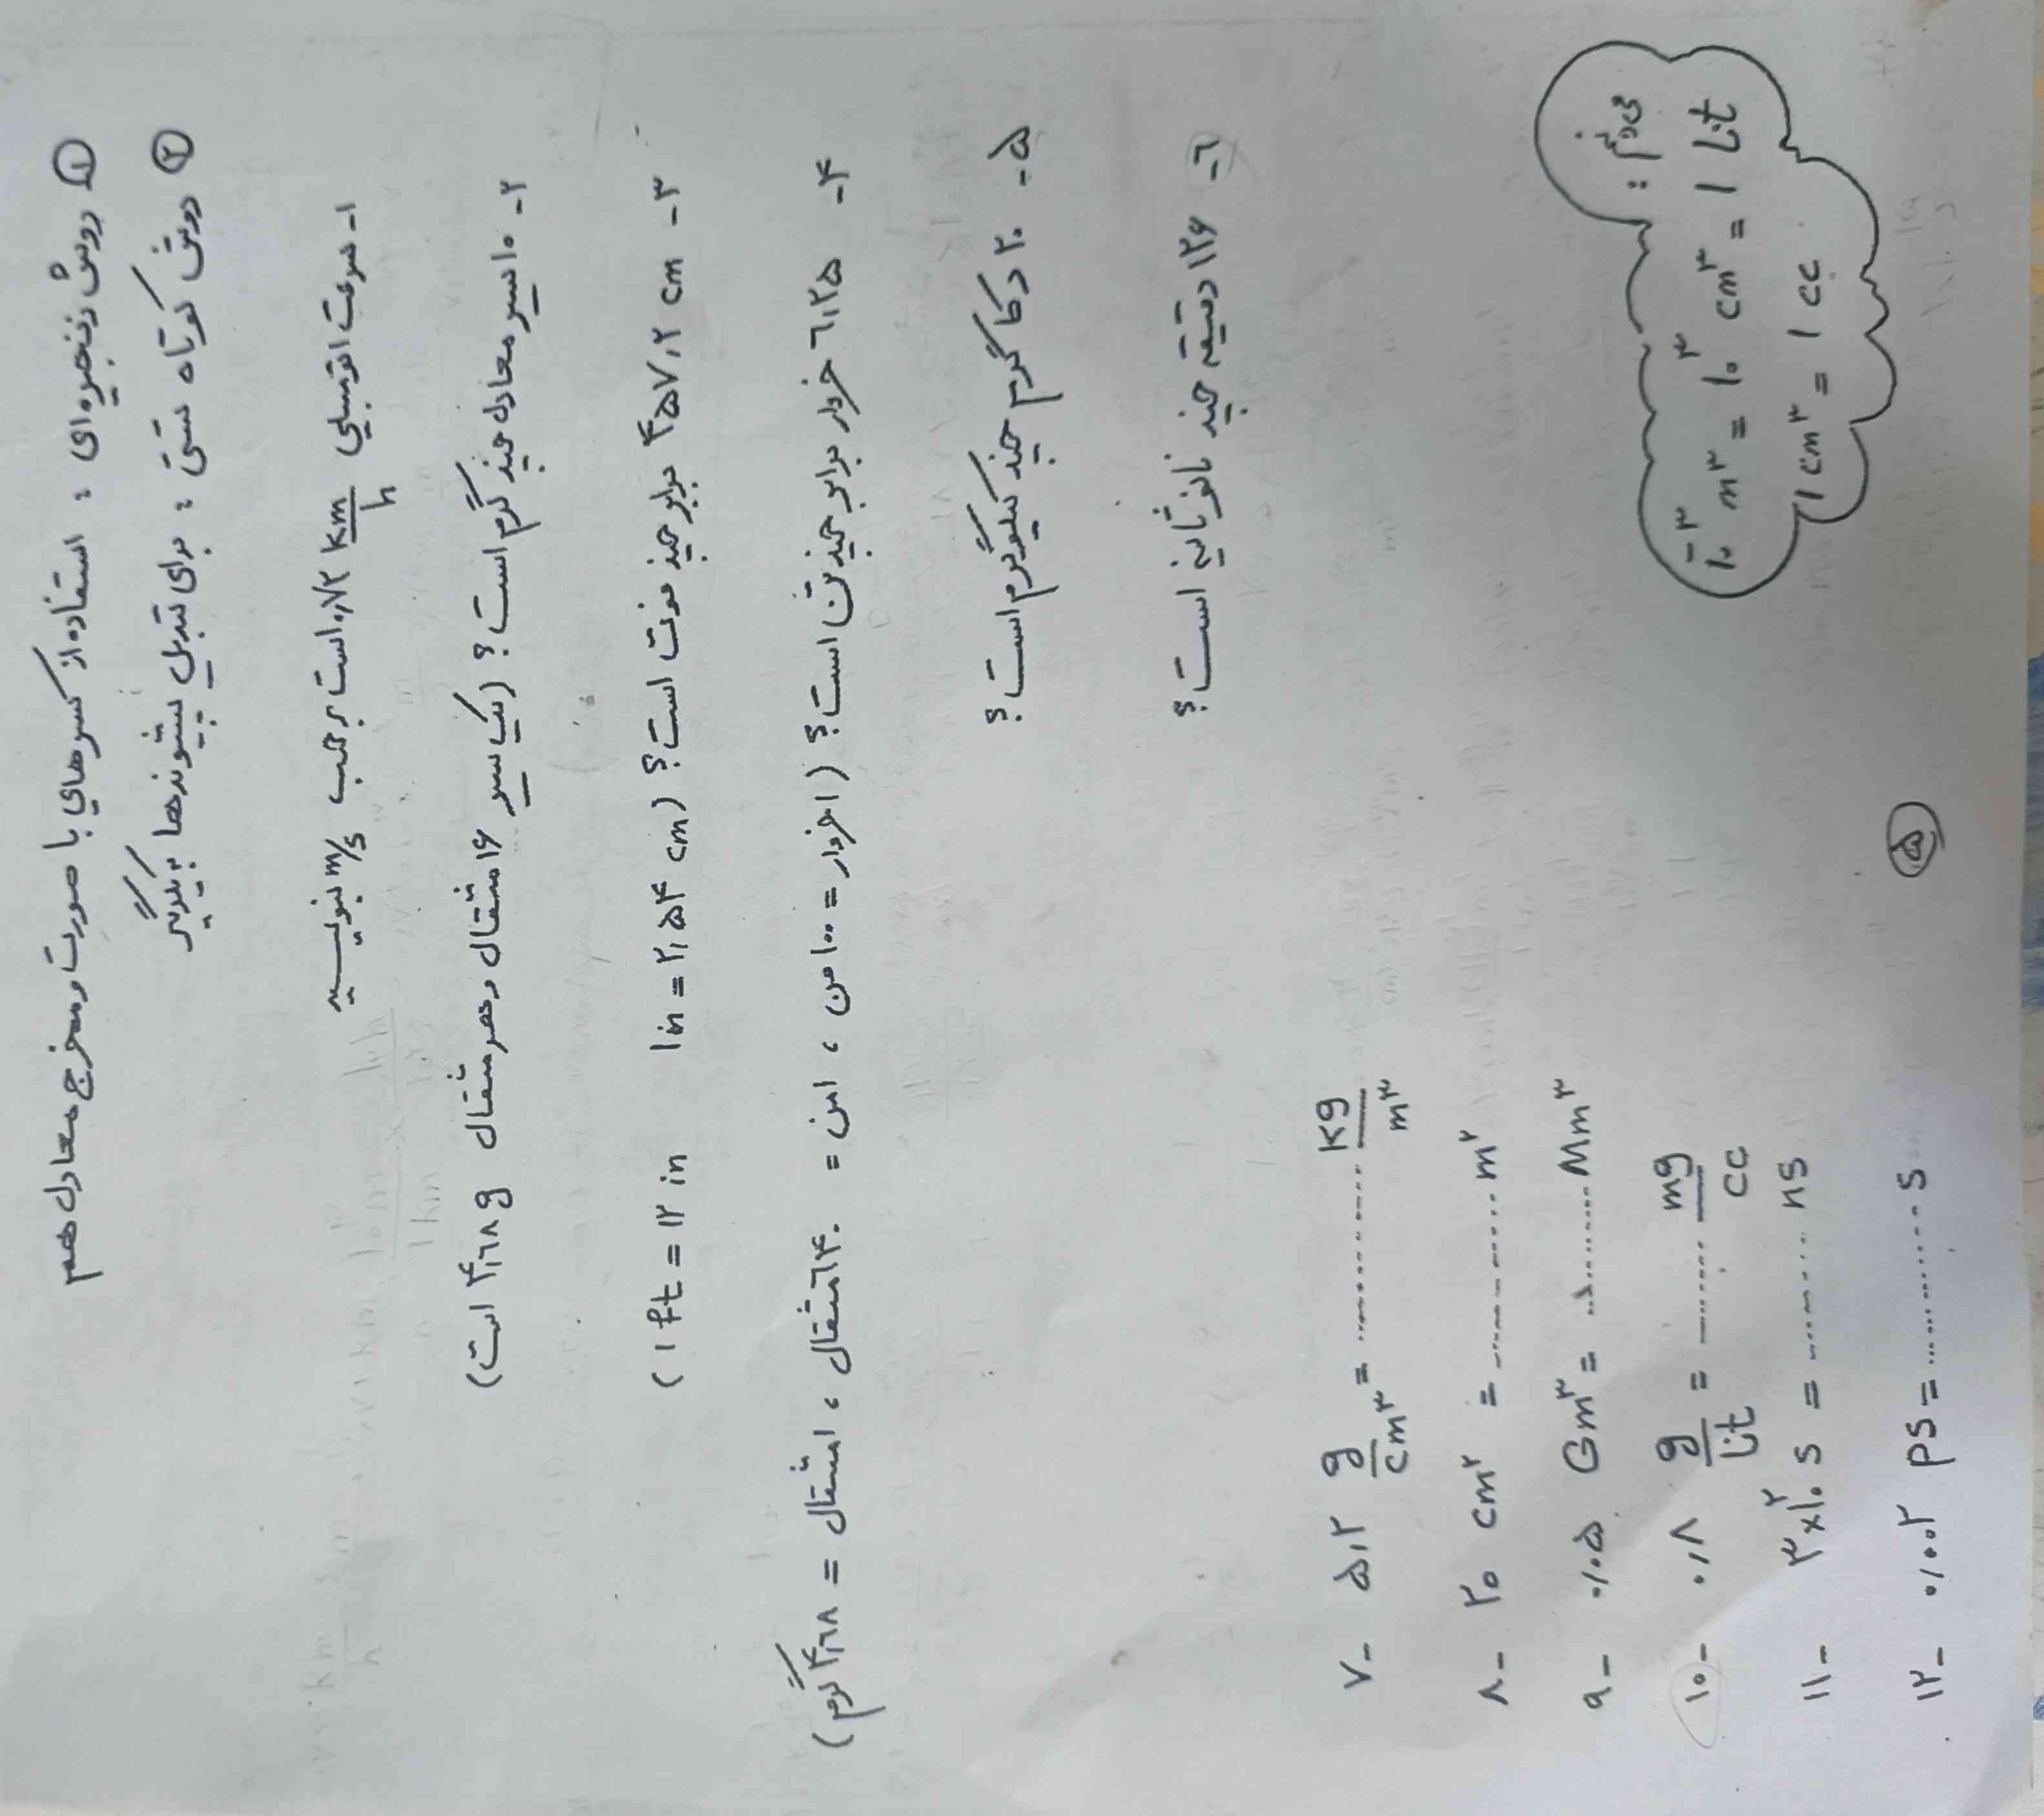 ① روش زنجیره‌ای : استفاده از کسرهایی با صورت و مخرج معادل هم
② روش کوتاه ستی : برای تبدیل پیشوندها به یکدیگر
۱- سرعت اتومبیلی ۰٫۷۲ km/h است بر حسب m/s بنویسید
۲- ۱۰ سیر معادل چند گرم است ؟ (یک سیر ۱۶ مثقال و هر مثقال ۴٫۶۸ g است)
۳- ۴۵۷٫۲ cm برابر چند فوت است ؟ (۱ ft = ۱۲ in 1in = ۲٫۵۴ cm)
۴- ۶٫۲۵ خروار برابر چند تن است ؟ (۱خروار = ۱۰۰ من ، ۱من = ۶۴۰ مثقال ، ۱مثقال = ۴٫۶۸ گرم)
۵- ۲۰ دکاگرم چند کیلوگرم است ؟
۶- ۱۲۶ دقیقه چند نانوثانیه است ؟
۷- ۵٫۲ g/cm³ = ............ kg/m³
۸- ۲۰ cm² = ............ m²
۹- ۰٫۰۵ Gm³ = ............ Mm³
۱۰- ۰٫۸ g/Lit = ........ mg/cc
۱۱- ۳×۱۰² s = ............ ns
۱۲- ۰٫۰۰۲ ps = ............ s
نجوم :
۱۰⁻³ m³ = ۱۰³ cm³ = ۱ Lit
۱ cm³ = ۱ cc
⑤